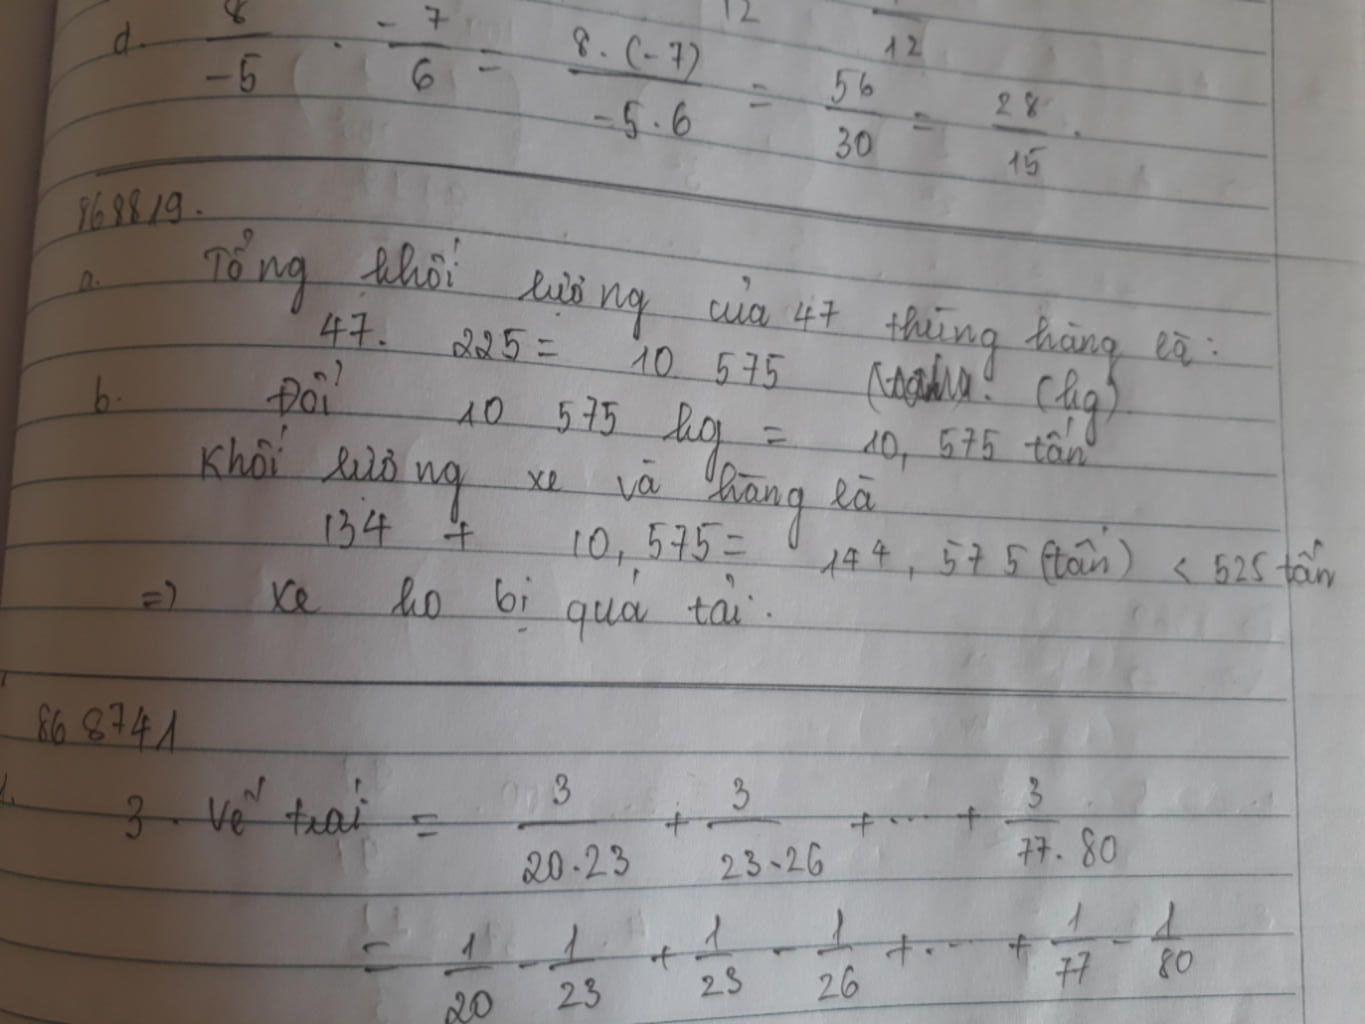 12
12
d. 8/-5 . -7/6 = 8.(-7)/-5.6 = 56/30 = 28/15.
868819.
a. Tổng khối lượng của 47 thùng hàng là:
47. 225 = 10 575 (kg)
b. Đổi 10 575 kg = 10, 575 tấn
Khối lượng xe và hàng là
134 + 10, 575 = 144, 575 (tấn) < 525 tấn
=> xe ko bị quá tải.
868741
3. Vế trái = 3/20.23 + 3/23.26 + ... + 3/77.80
= 1/20 - 1/23 + 1/23 - 1/26 + ... + 1/77 - 1/80